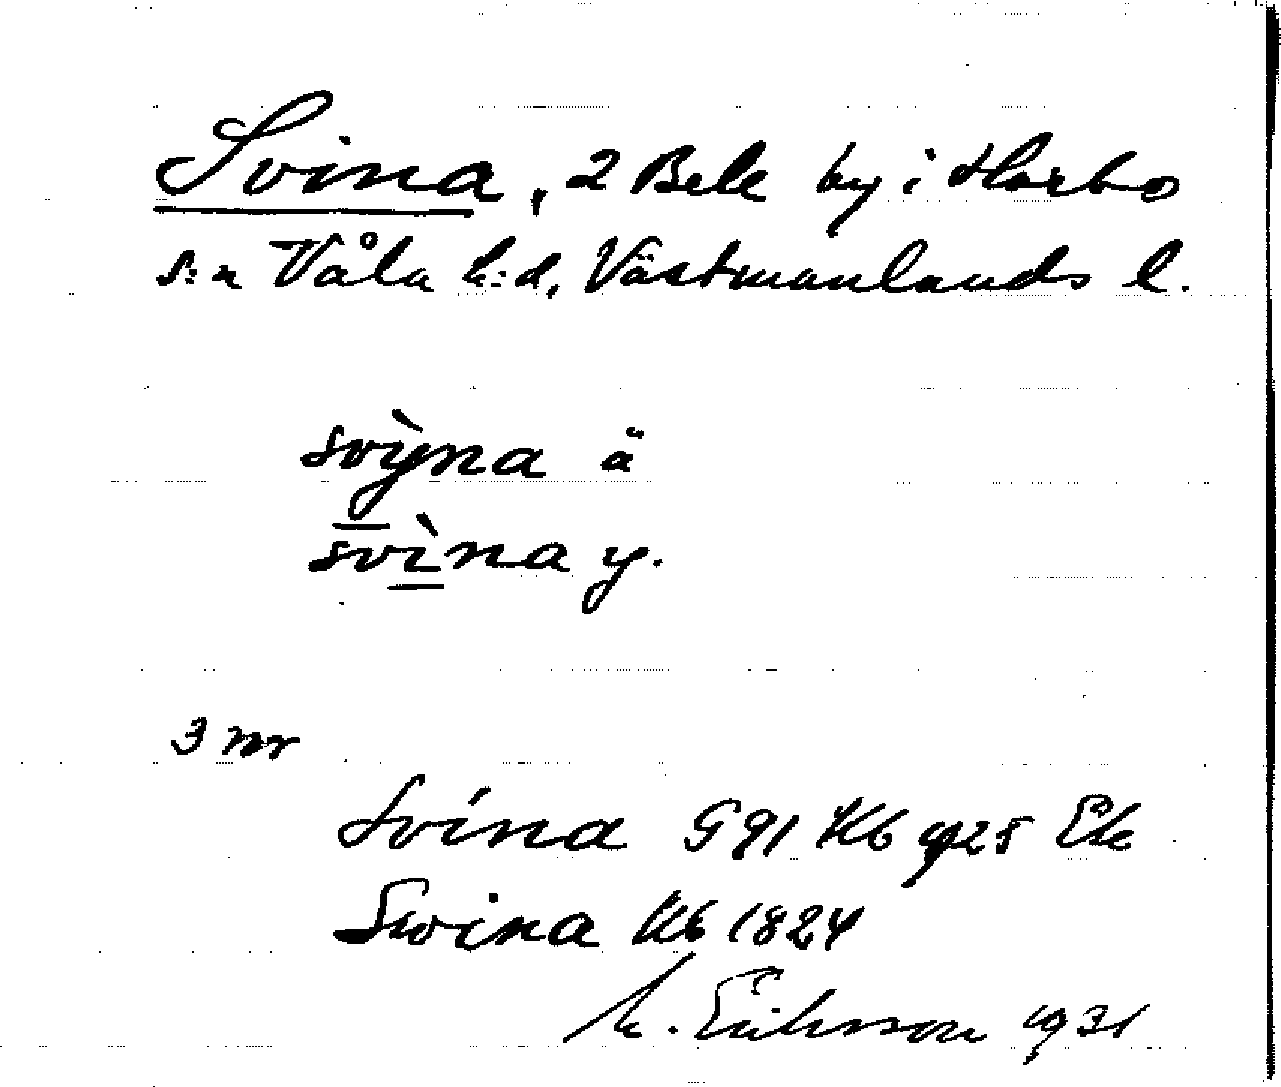 Svina, 2 Bek by i Harbo
s:n Våla h:d, Västmanlands l.
svỳ̠na ä
svì̠na y.
3 nr
Svina G 91 Kb 1925 Ek
Swina Kb 1824
M. Eriksson 1931